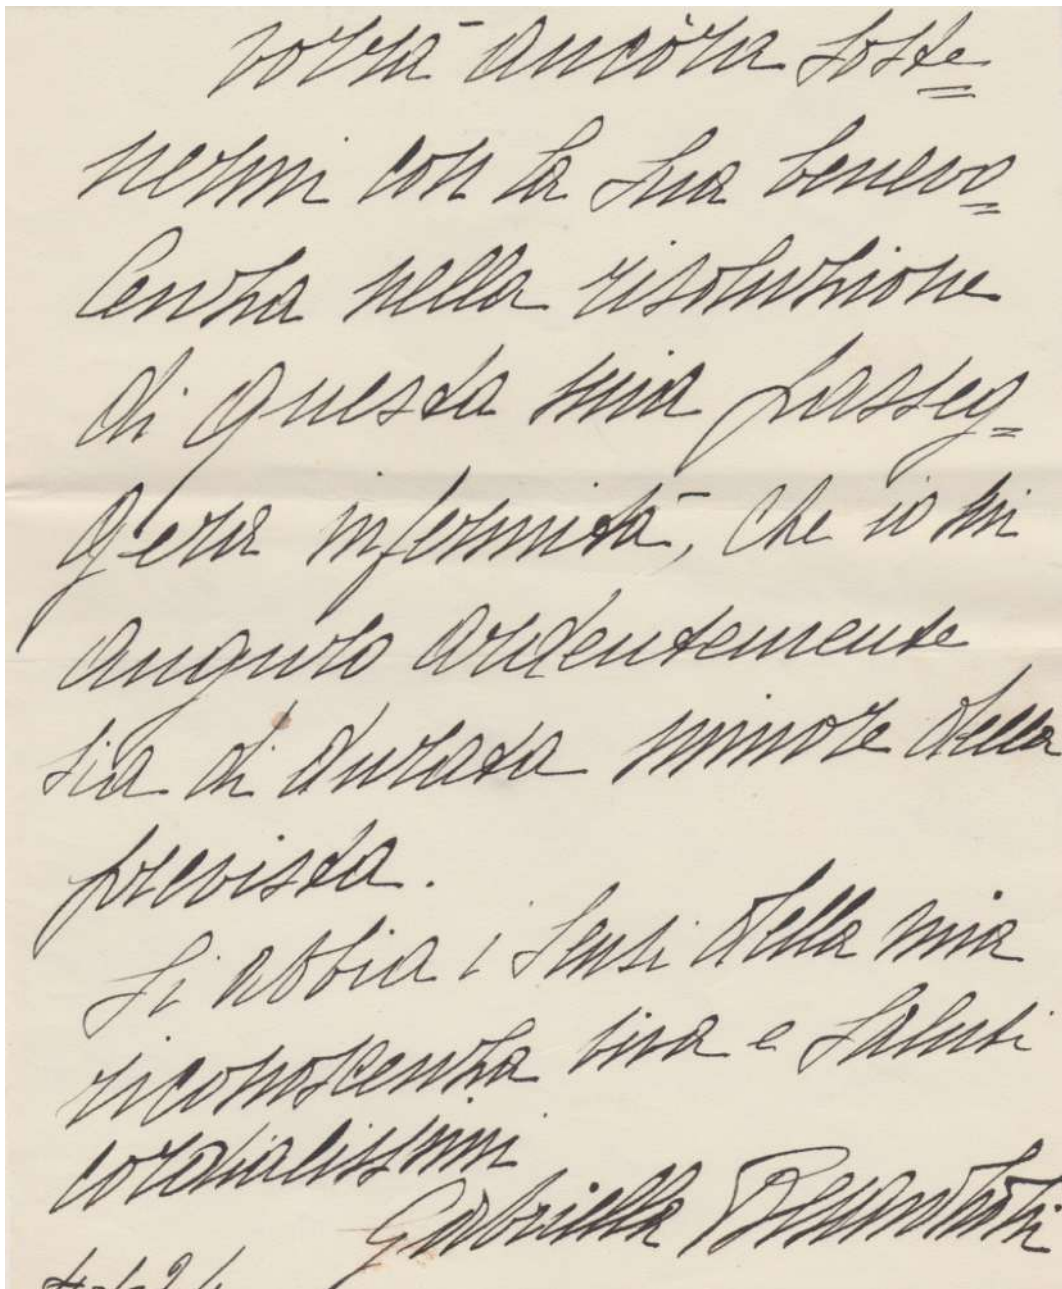 vorrà ancòra soste=
nermi con la sua benevo=
lenza nella risoluzione
di questa mia passeg=
gera infermità, che io mi
auguro ardentemente
sia di durata minore della
prevista.
Si abbia i sensi della mia
riconoscenza viva e saluti
cordialissimi
Gabriella